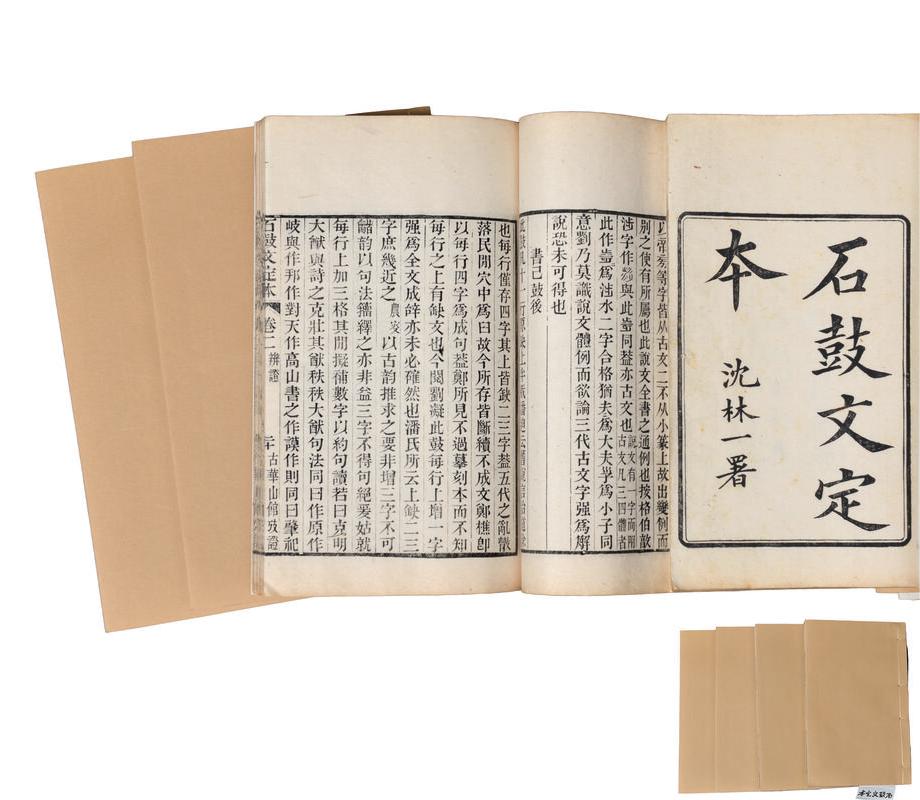 石鼓文定
本
沈林一署
以帝旁等字皆从古文二不从小篆上故出變例而
別之使有所屬也此說文全書之通例也按格伯敦
此作𧯆為沽水二字合格猶夫為大夫學為小子同
意劉乃莫識說文體例而欲論三代古文字强為解
說恐未可得也
書己鼓後
也每行僅存四字其上皆缺二三字葢五代之亂散
落民閒穴中為臼故今所存皆斷續不成文鄭樵卽
以每行四字為成句葢鄭所見不過摹刻本而不知
每行之上有缺文也今閱劉凝此鼓每行上增一字
强為全文成誶亦未必確然也潘氏所云上缺二三
字庶幾近之農淩以古韵推求之要非增三字不可
諧韵以句法籀繹之亦非益三字不得句絕爰姑就
每行上加三格其閒擬補數字以約句讀若曰克明
大猷與詩之克壯其猷秩秩大猷句法同曰作原作
岐與作邦作對天作高山書之作謨作則同曰肇祀
石鼓文定本 卷二 辨證 二十 古華山館攷證
石鼓文定本